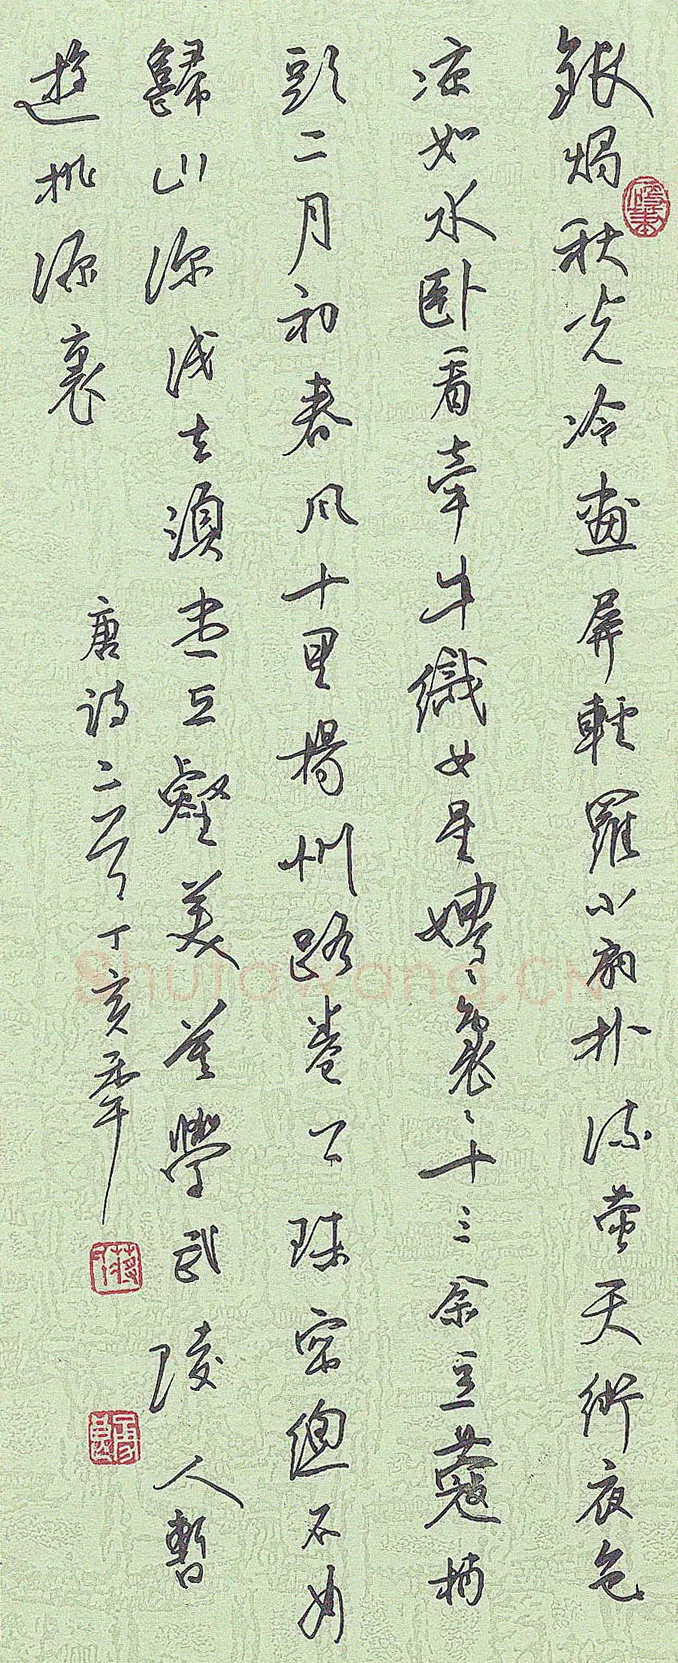 銀燭秋光冷畫屏輕羅小扇扑流螢天街夜色
凉如水卧看牽牛織女星娉〻裊〻十三余豆蔻梢
頭二月初春風十里揚州路卷上珠帘總不如
歸山深浅去須盡丘壑美莫學武陵人暫
遊桃源裏
唐詩三首丁亥年
Shufawang.CN